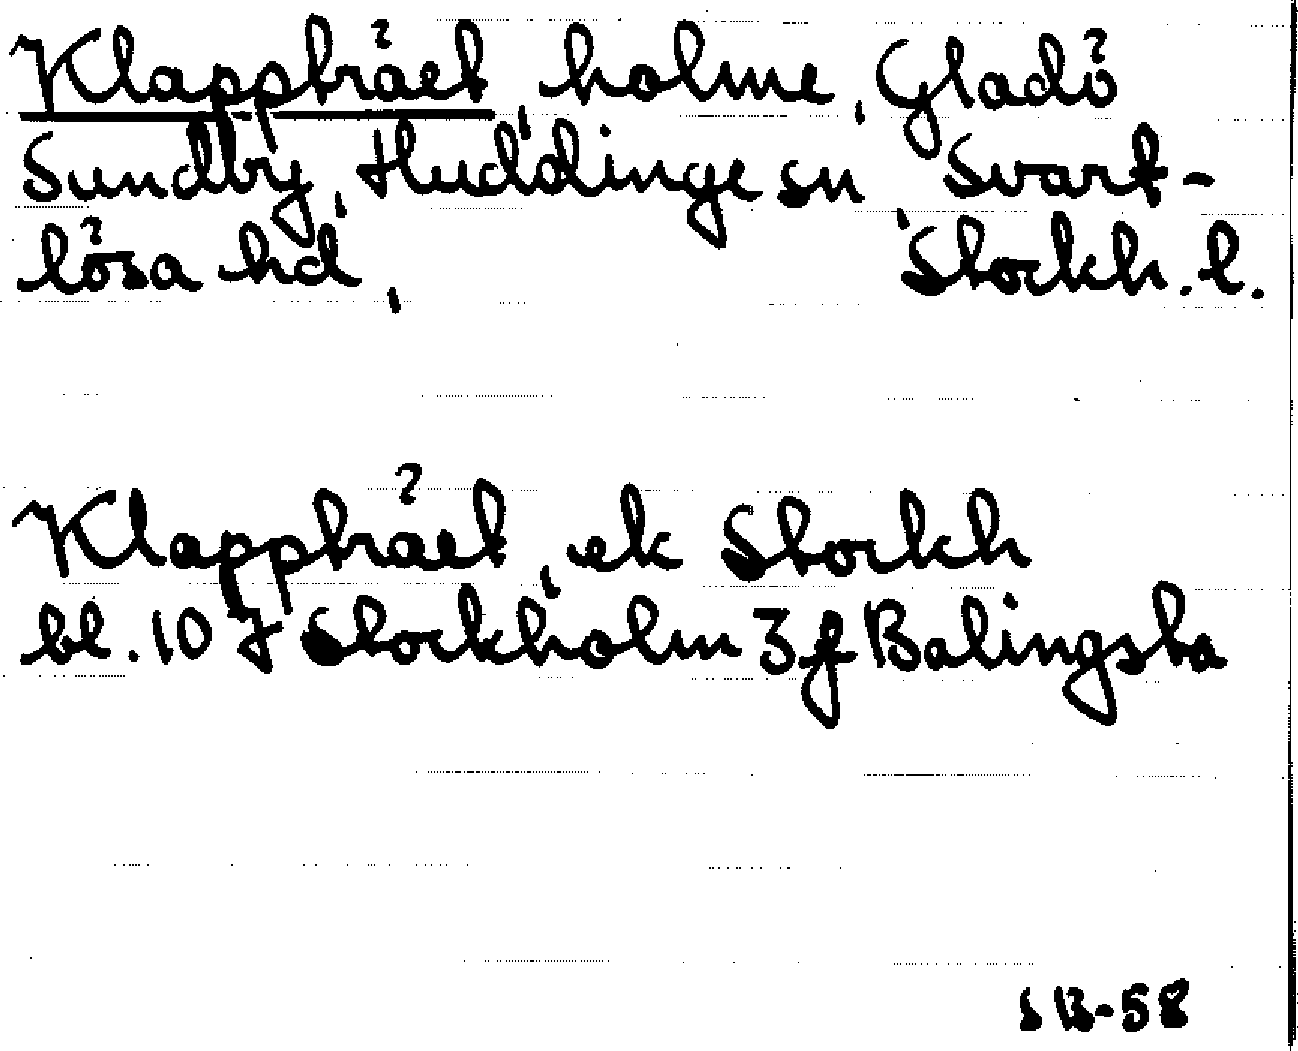 Klappträet, holme, Gladö
Sundby, Huddinge sn, Svart-
lösa hd, Stockh. l.
Klappträet, ek Stockh
bl. 10 J Stockholm 3 f Balingsta
SB-58